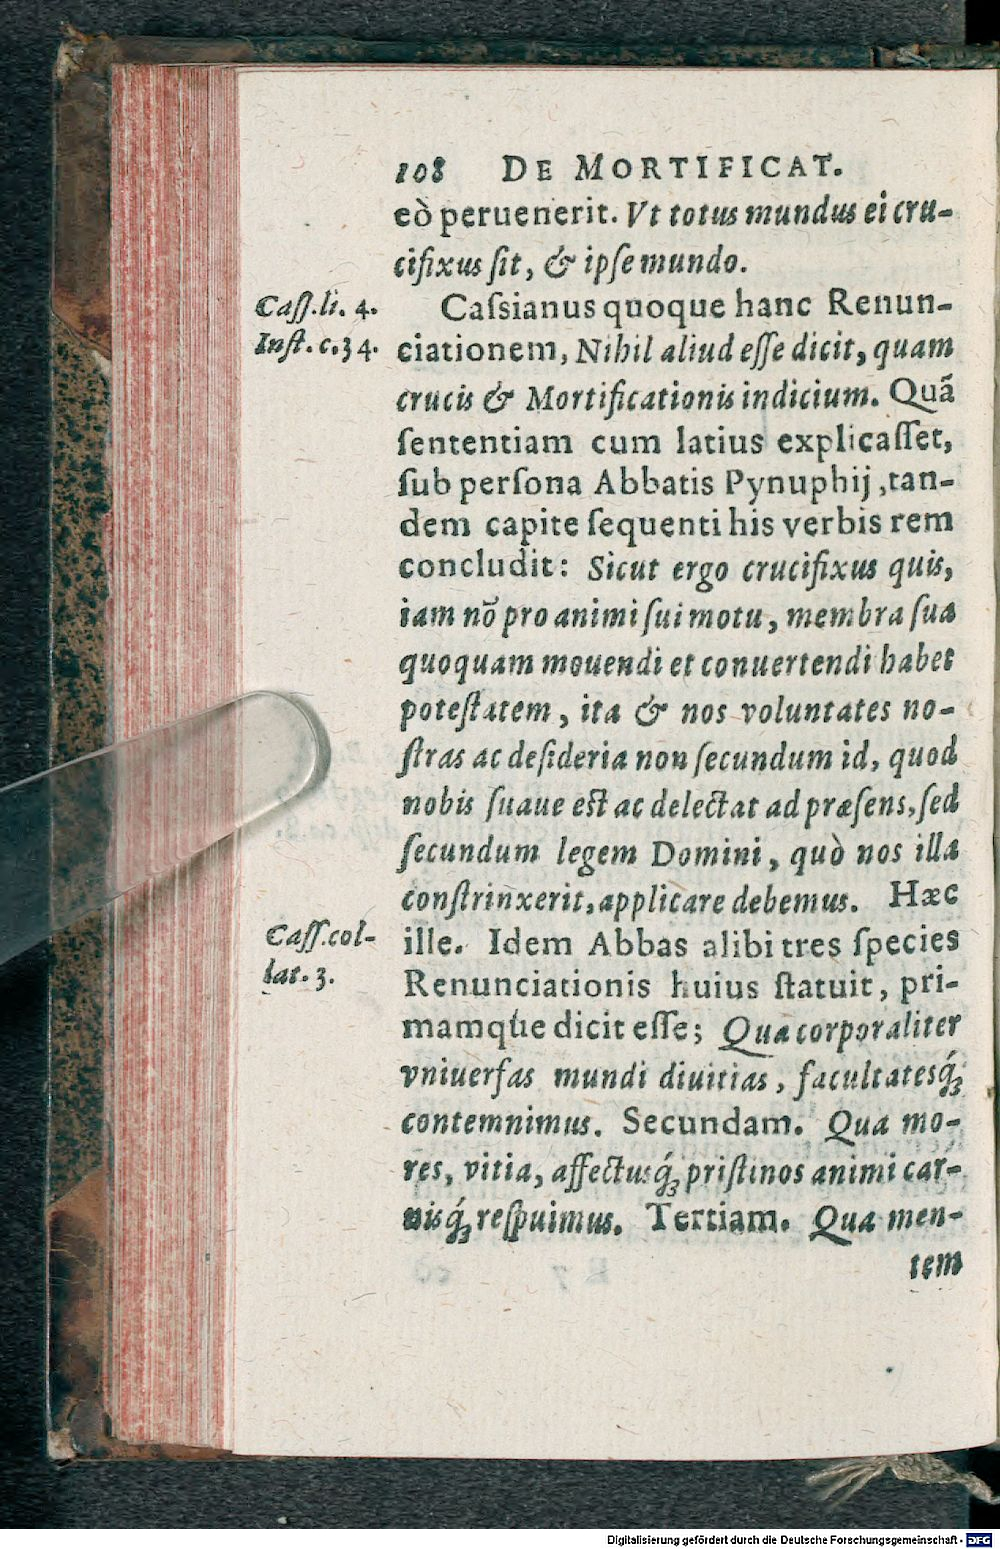 108 DE MORTIFICAT.
eò peruenerit. Vt totus mundus ei cru-
cifixus ſit, & ipſe mundo.
Caſſ. li. 4.
Inſt. c. 34.
Caſsianus quoque hanc Renun-
ciationem, Nihil aliud eſſe dicit, quam
crucis & Mortificationis indicium. Quã
ſententiam cum latius explicaſſet,
ſub perſona Abbatis Pynuphij, tan-
dem capite ſequenti his verbis rem
concludit: Sicut ergo crucifixus quis,
iam nõ pro animi ſui motu, membra ſua
quoquam mouendi et conuertendi habet
poteſtatem, ita & nos voluntates no-
ſtras ac deſideria non ſecundum id, quod
nobis ſuaue eſt ac delectat ad præſens, ſed
ſecundum legem Domini, quò nos illa
conſtrinxerit, applicare debemus. Hæc
Caſſ. col-
lat. 3.
ille. Idem Abbas alibi tres ſpecies
Renunciationis huius ſtatuit, pri-
mamque dicit eſſe; Qua corporaliter
vniuerſas mundi diuitias, facultatesq́;
contemnimus. Secundam. Qua mo-
res, vitia, affectusq́; priſtinos animi car-
nisq́; reſpuimus. Tertiam. Qua men-
tem
Digitalisierung gefördert durch die Deutsche Forschungsgemeinschaft - DFG